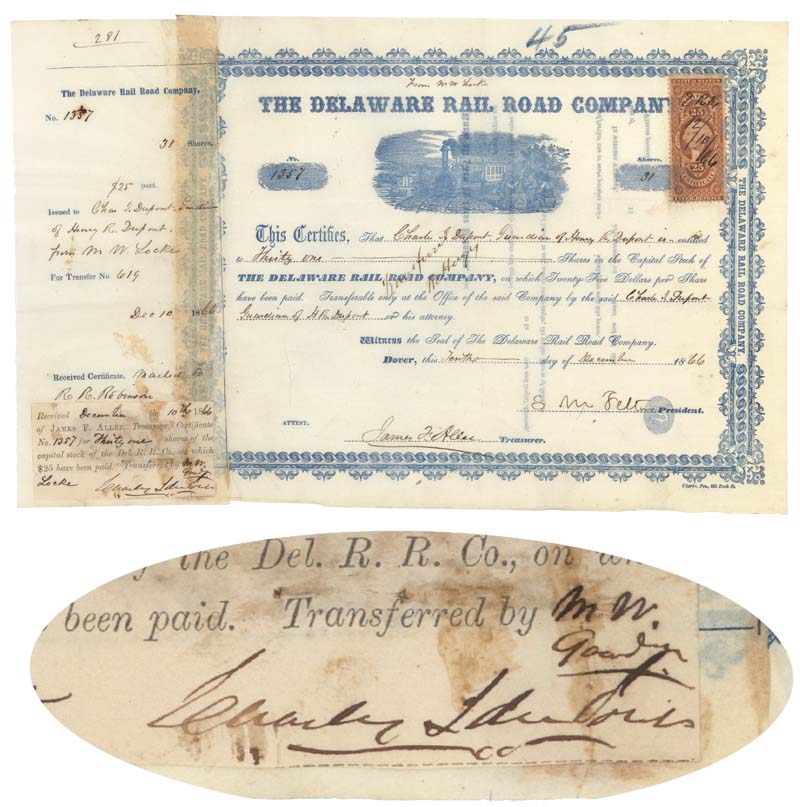 281
The Delaware Rail Road Company,
No. 1357
31 Shares.
$25 paid.
Issued to Chas I. Dupont Guardian
of Henry R. Dupont.
from M W Locke
For Transfer No. 619
Dec 10 1866
Received Certificate, Mailed to
R. R. Robinson
Received December the 10th 1866
of JAMES F. ALLEE, Treasurer, Certificate
No. 1357 for Thirty one shares of the
capital stock of the Del. R. R. Co., on which
$25 have been paid. Transferred by M W.
Locke
45
From M W Locke
THE DELAWARE RAIL ROAD COMPANY
UNITED STATES
25
25
CERTIFICATE
12/10/66
No.
1357
Shares.
31
This Certifies, That Charles I. Dupont Guardian of Henry R. Dupont is entitled
to Thirty one Shares in the Capital Stock of
THE DELAWARE RAIL ROAD COMPANY, on which Twenty-Five Dollars per Share
have been paid. Transferable only at the Office of the said Company by the said Charles I. Dupont
Guardian of H R Dupont or his attorney.
Witness the Seal of The Delaware Rail Road Company.
Dover, this Tenth day of December 1866
S M Felton President.
ATTEST.
James F. Allee Treasurer.
THE DELAWARE RAIL ROAD COMPANY.
the Del. R. R. Co., on
been paid. Transferred by M W.